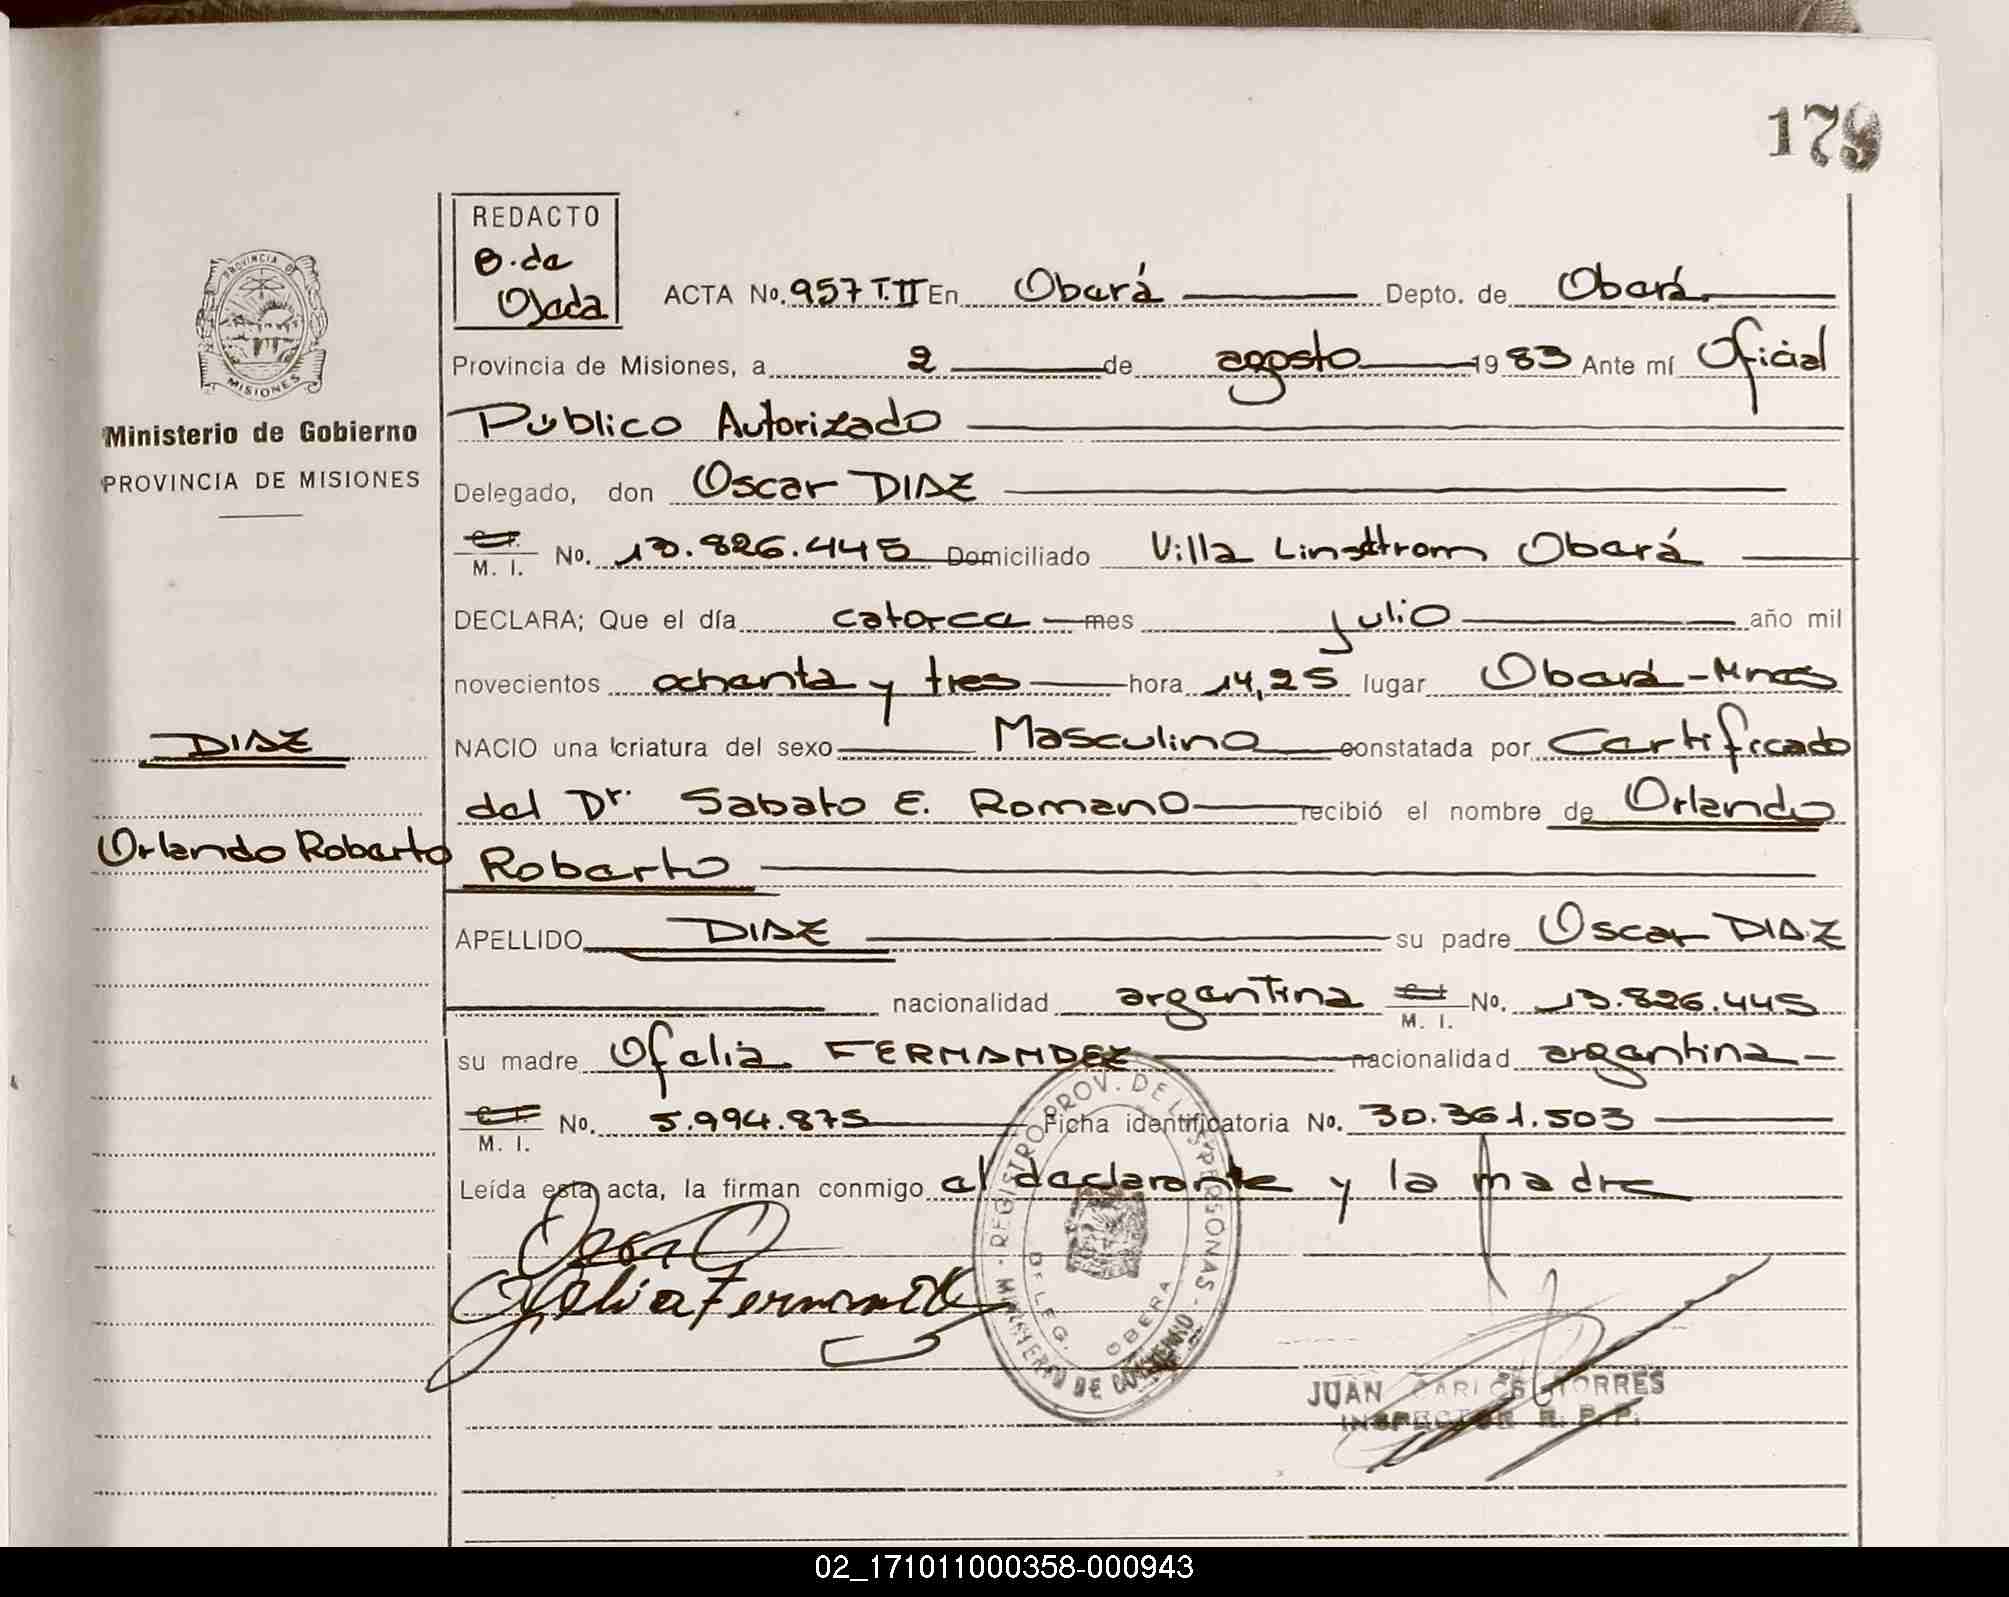 179
REDACTO
B. de
Ojeda
PROVINCIA DE
MISIONES
Ministerio de Gobierno
PROVINCIA DE MISIONES
ACTA No. 957 T.II En Oberá Depto. de Oberá
Provincia de Misiones, a 2 de agosto 1983 Ante mí Oficial
Público Autorizado
Delegado, don Oscar DIAZ
C. I. M. I. No. 13.826.445 Domiciliado Villa Lindstrom Oberá
DECLARA; Que el día catorce mes julio año mil
novecientos ochenta y tres hora 14,25 lugar Oberá-Mnes
DIAZ
NACIO una criatura del sexo Masculino constatada por Certificado
del Dr. Sabato E. Romano recibió el nombre de Orlando
Orlando Roberto
Roberto
APELLIDO DIAZ su padre Oscar DIAZ
nacionalidad argentina C. I. M. I. No. 13.826.445
su madre Ofelia FERNANDEZ nacionalidad argentina
C. I. M. I. No. 5.994.875 Ficha identificatoria No. 30.361.503
Leída esta acta, la firman conmigo el declarante y la madre
Ofelia Fernandez
REGISTRO PROV. DE LAS PERSONAS - MINISTERIO DE GOBIERNO
DELEG. OBERA
JUAN CARLOS TORRES
INSPECTOR R. P. P.
02_171011000358-000943